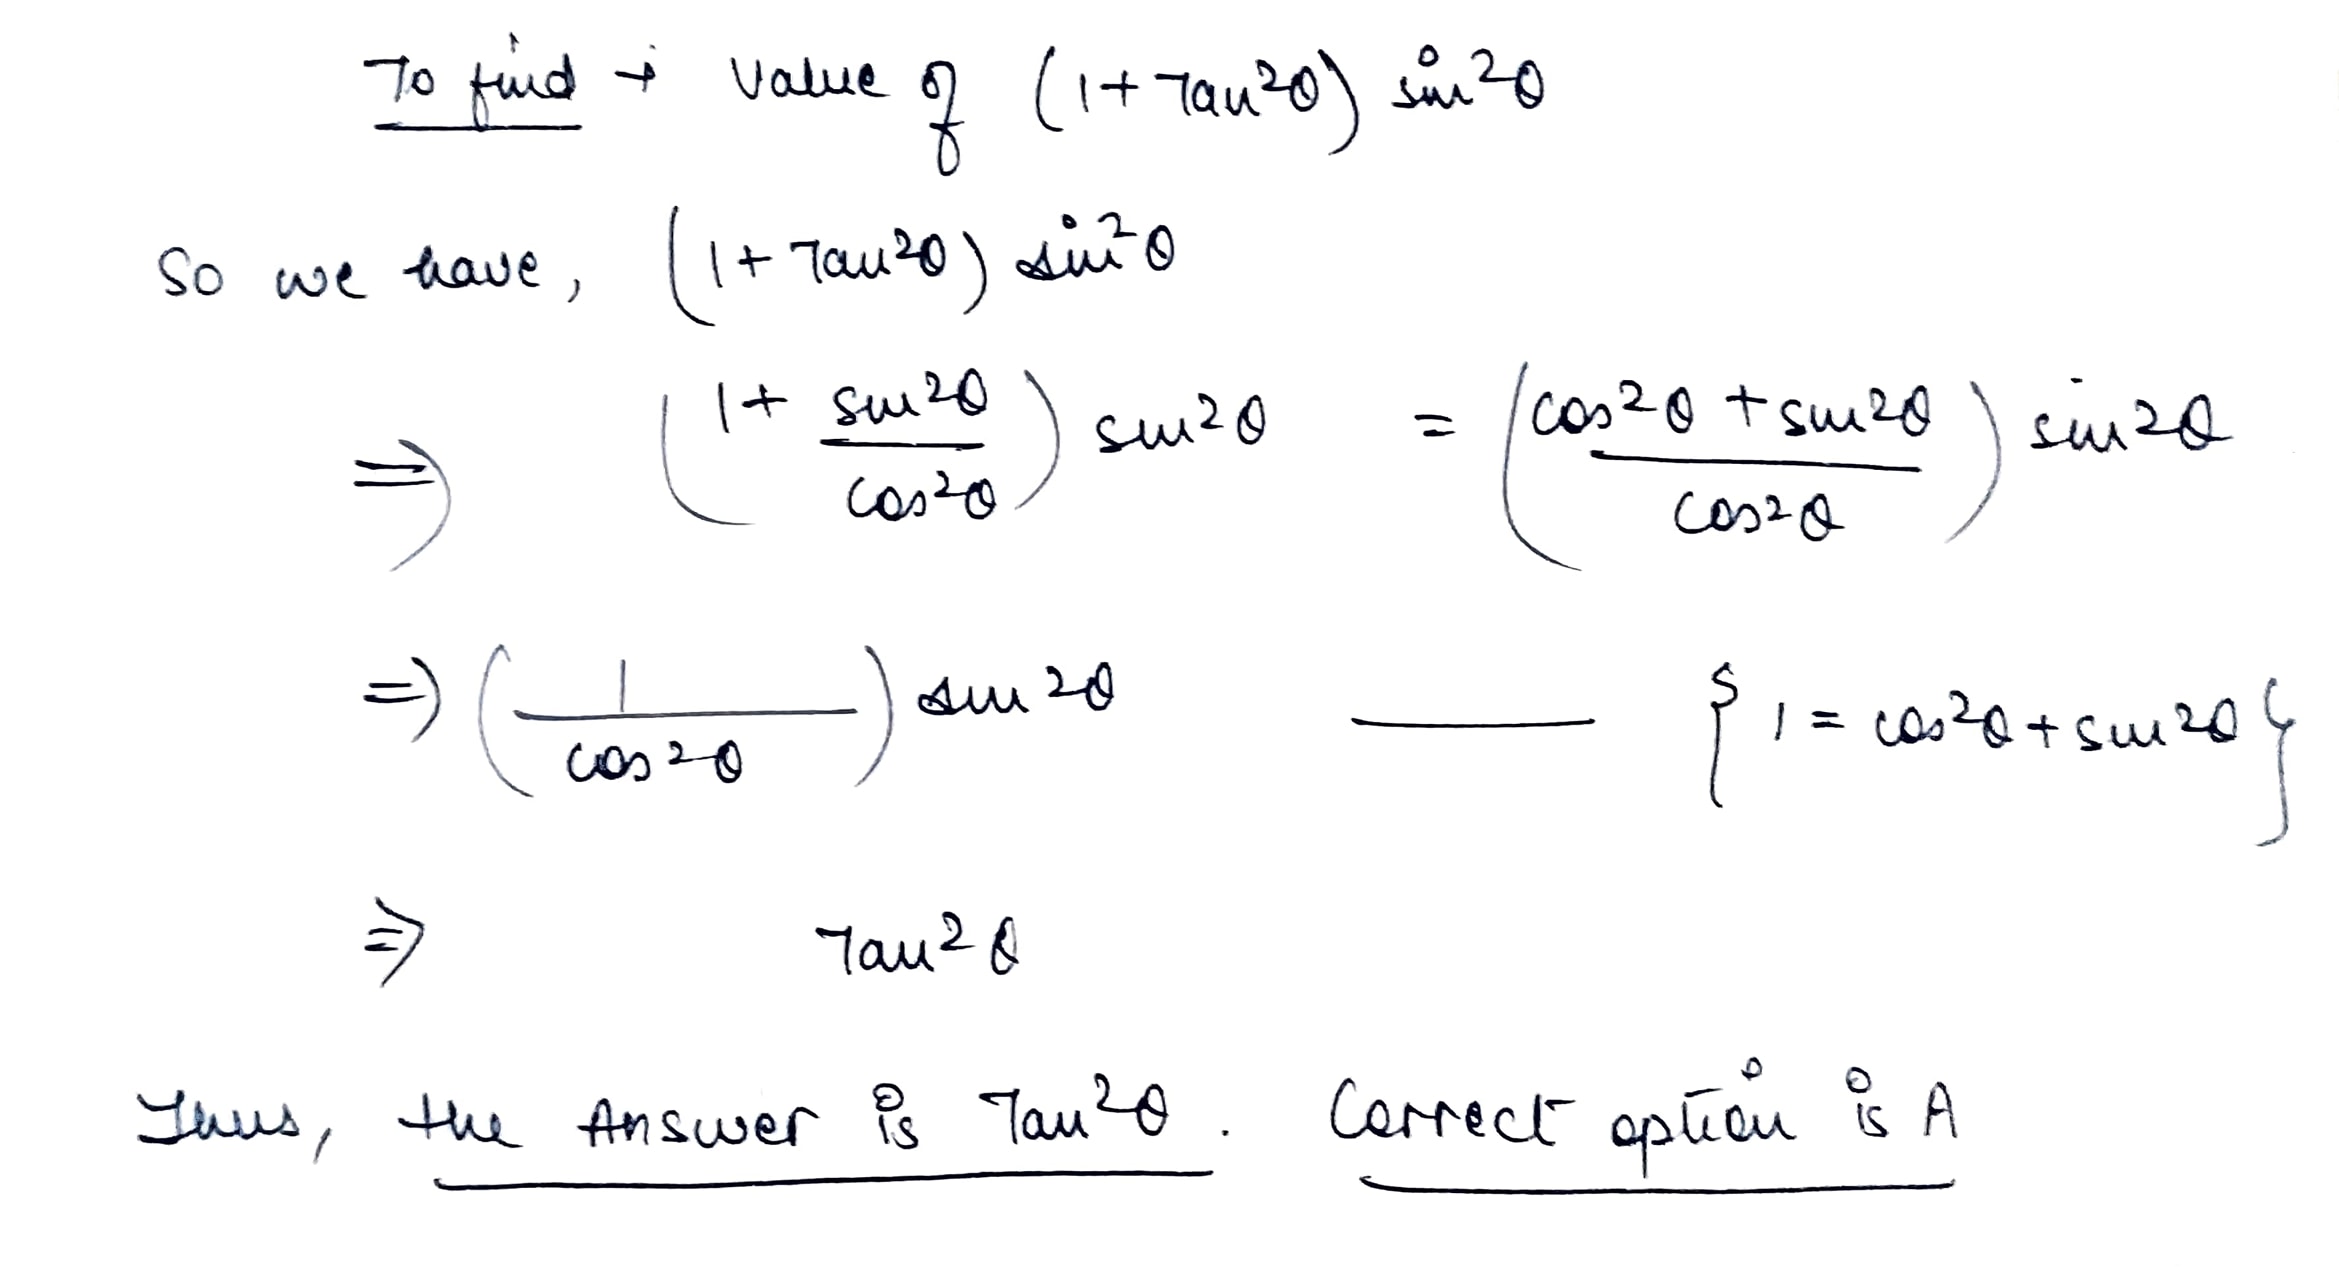 To find → Value of (1+Tan²θ) sin²θ
So we have, (1+Tan²θ) sin²θ
⇒ (1+ sin²θ/cos²θ) sin²θ = (cos²θ + sin²θ/cos²θ) sin²θ
⇒ (1/cos²θ) sin²θ —— {1 = cos²θ + sin²θ}
⇒ Tan²θ
Thus, the Answer is Tan²θ. Correct option is A